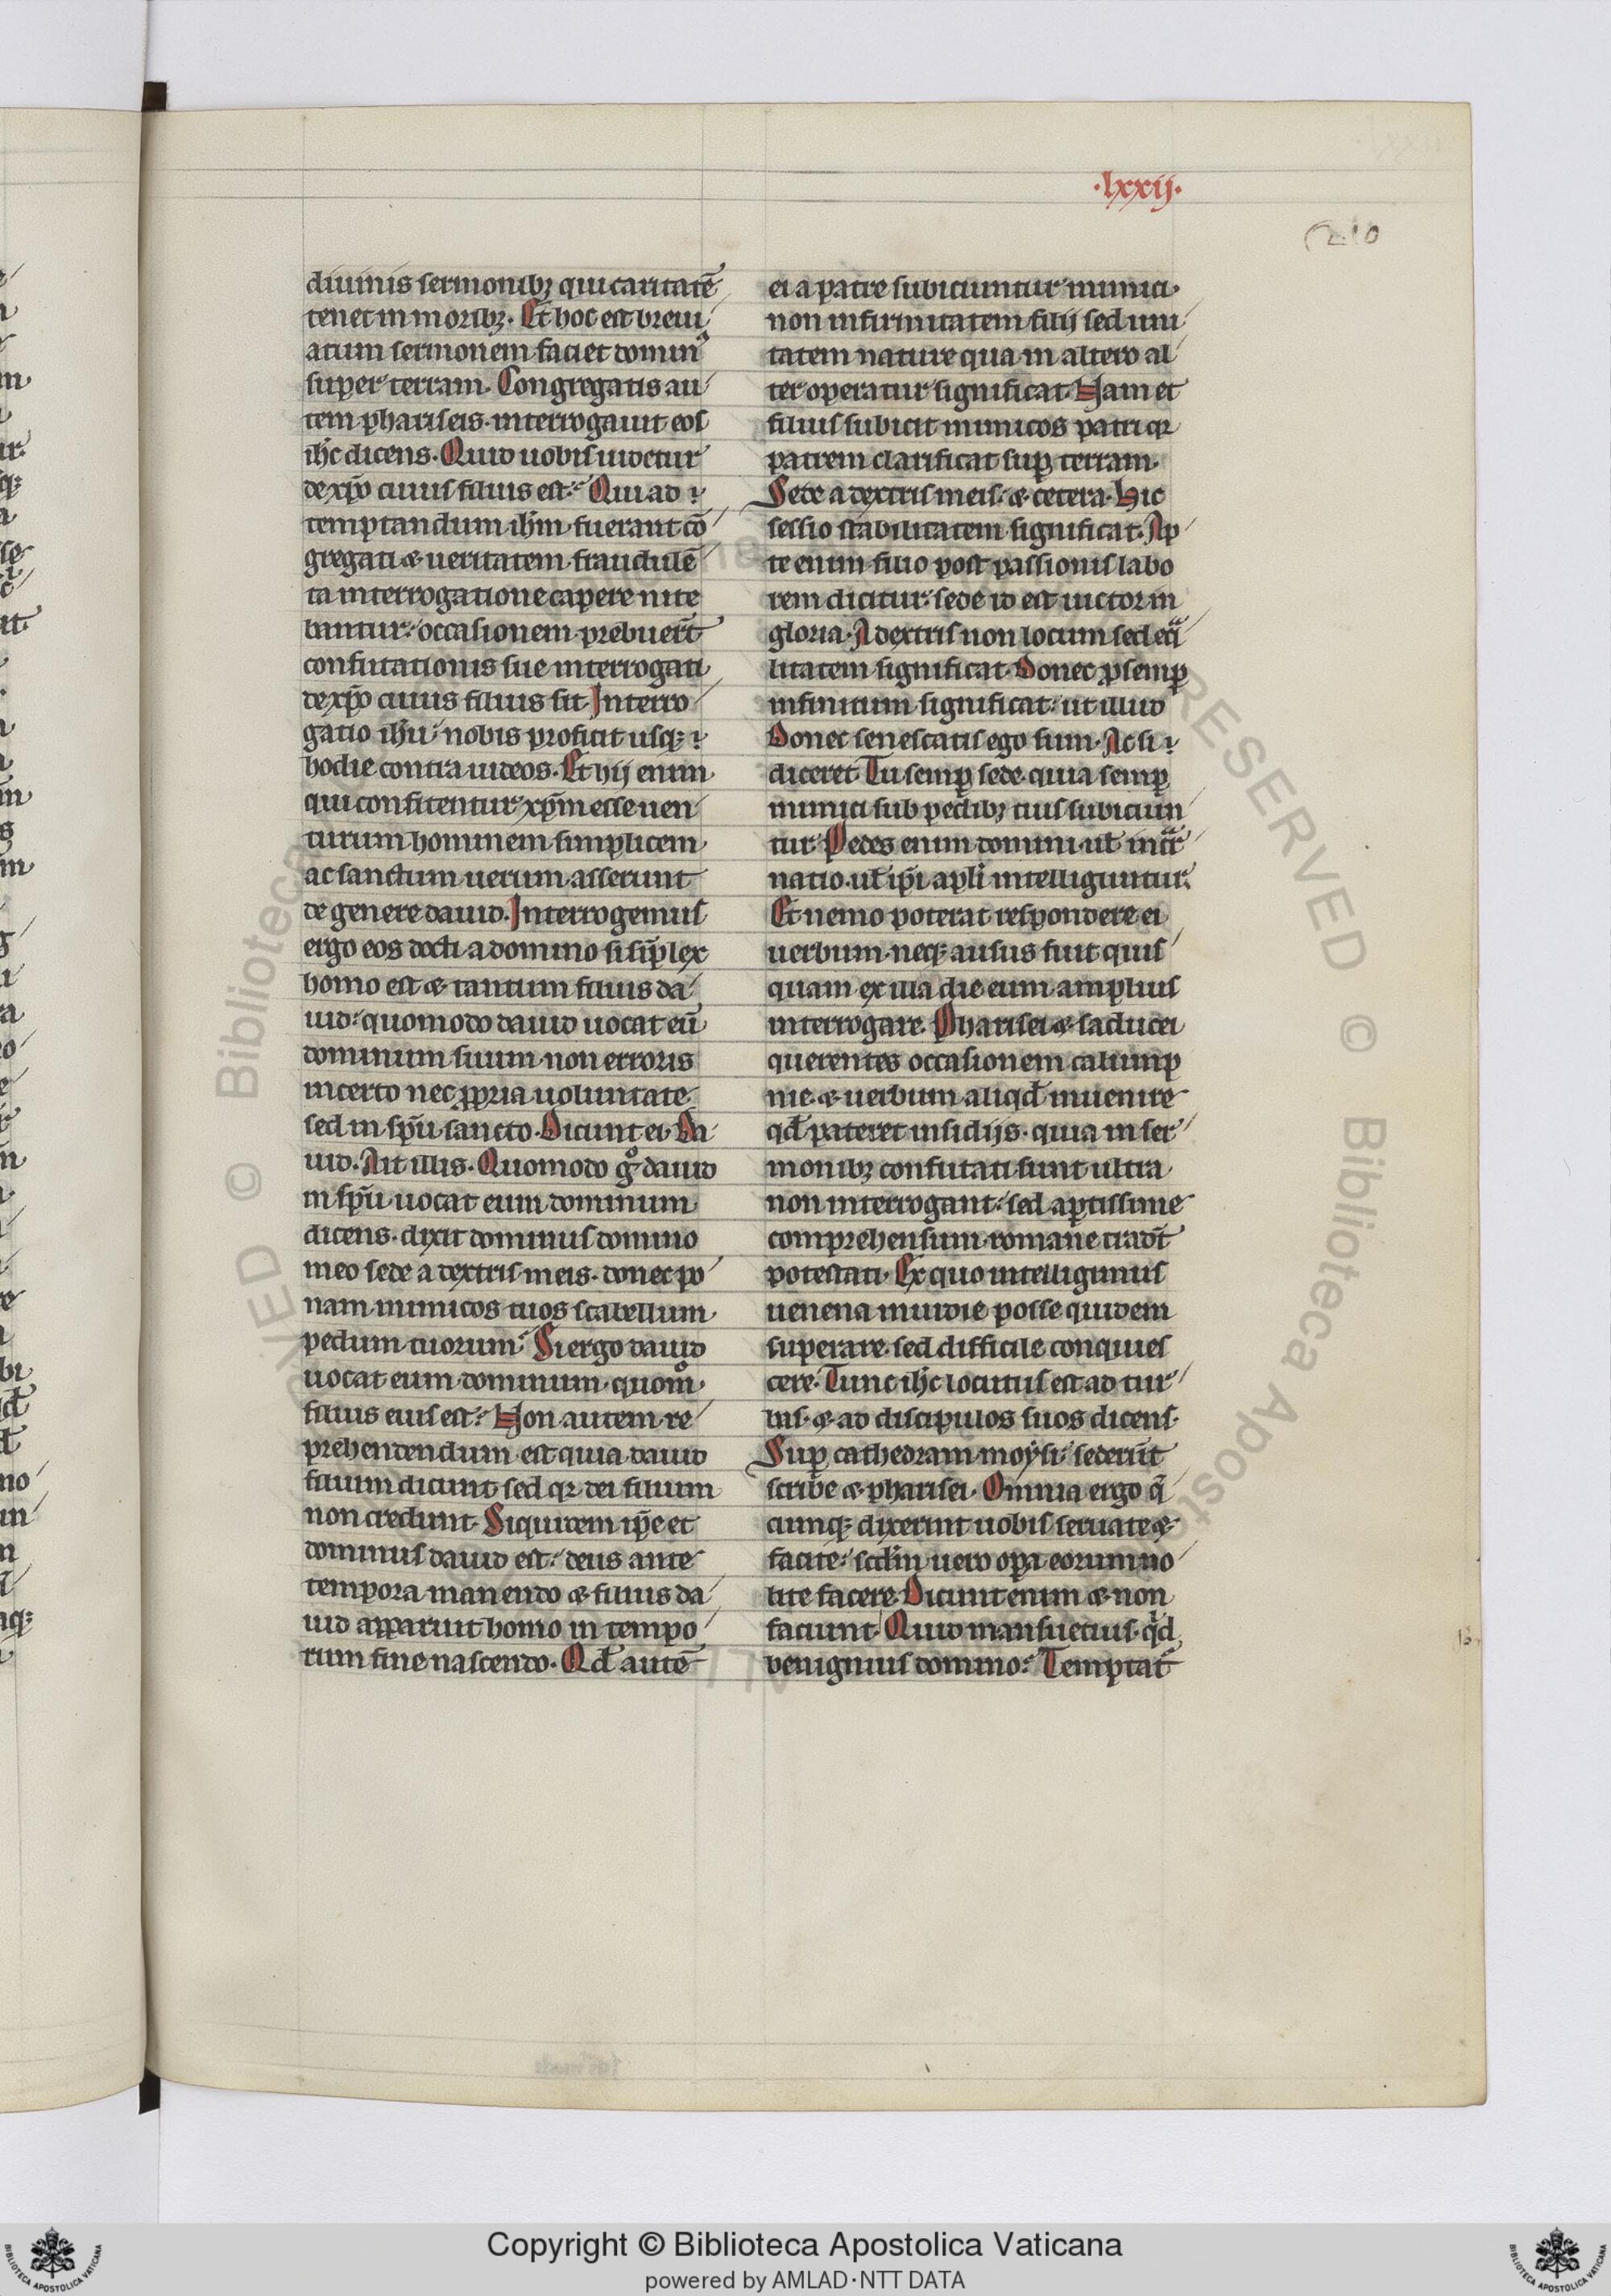 ·lxxij·
210
diuinis sermonibꝫ qui caritatē
tenet in moribꝫ. Et hoc est breui
atum sermonem faciet dominꝰ
super terram. Congregatis au
tem phariseis. interrogauit eos
ihc̄ dicens. Quid uobis uidetur
de xp̄o cuius filius est? Qui ad
temptandum ihm̄ fuerant cō
gregati & ueritatem fraudulē
ta interrogatione capere nite
bantur: occasionem prebuer̄t
confutationis sue interrogati
de xp̄o cuius filius sit. Interro
gatio ihū nobis proficit usqꝫ
hodie contra iudeos. Et hij enim
qui confitentur xp̄m esse uen
turum hominem simplicem
ac sanctum uerum asserunt
de genere dauid. Interrogemus
ergo eos docti a domino si sīplex
homo est & tantum filius da
uid: quomodo dauid uocat eū
dominum suum non erroris
incerto nec ꝓpria uoluntate
sed in sp̄u sancto. Dicunt ei. Da
uid. Ait illis. Quomodo gͦ dauid
in sp̄u uocat eum dominum
dicens. dixit dominus domino
meo sede a dextris meis. donec po
nam inimicos tuos scabellum
pedum tuorum? Si ergo dauid
uocat eum dominum quom̊
filius eius est? Non autem re
prehendendum est quia dauid
filium dicunt sed qꝛ dei filium
non credunt. Siquidem ip̄e et
dominus dauid est: deus ante
tempora manendo & filius da
uid apparuit homo in tempo
rum fine nascendo. Qd̄ autē
ei a patre subiciuntur inimici
non infirmitatem filij sed uni
tatem nature qua in altero al
ter operatur significat. Nam et
filius subicit inimicos patri qꝛ
patrem clarificat suꝑ terram.
Sede a dextris meis. & cetera. Hic
sessio stabilitatem significat. Ap
te enim filio post passionis labo
rem dicitur: sede id est uictor in
gloria. A dextris non locum sed eqͣ
litatem significat. Donec ꝓ semꝑ
infinitum significat: ut illud
Donec senescatis ego sum. Ac si
diceret Tu semꝑ sede. quia semꝑ
inimici sub pedibꝫ tuis subiciun
tur. Pedes enim domini. ul̄ incͣr
natio. ul̄ ip̄i apl̄i intelliguntur.
Et nemo poterat respondere ei
uerbum. neqꝫ ausus fuit quis
quam ex illa die eum amplius
interrogare. Pharisei & saducei
querentes occasionem calump
nie. & uerbum aliqd̄ inuenire
qd̄ pateret insidijs. quia in ser
monibꝫ confutati sunt ultra
non interrogant: sed aꝑtissime
comprehensum romane trad̄t
potestati. Ex quo intelligimus
uenena inuidie posse quidem
superare. sed difficile conquies
cere. Tunc ihc̄ locutus est ad tur
bas. & ad discipulos suos dicens.
Suꝑ cathedram moysi: seder̄ut
scribe & pharisei. Omnia ergo q̄
cumqꝫ dixerint uobis seruate &
facite: scd̄m uero oꝑa eorum no
lite facere. Dicunt enim & non
faciunt. Quid mansuetius. qͥd
benignius domino? Temptat᷑
Copyright © Biblioteca Apostolica Vaticana
powered by AMLAD·NTT DATA